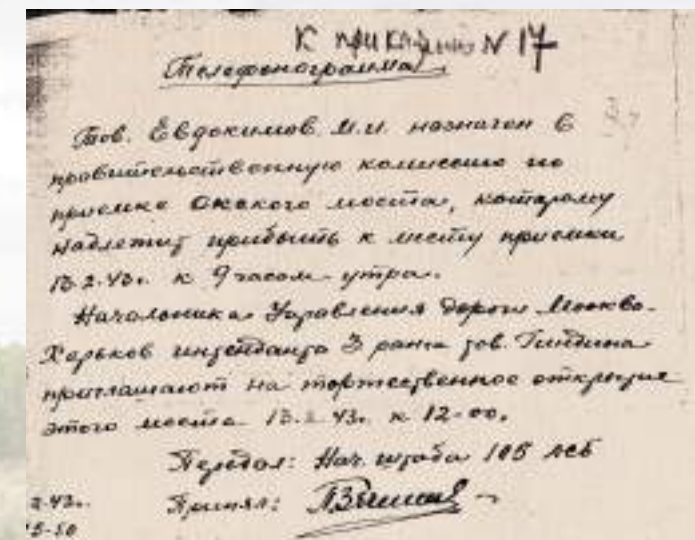 К приказу N 17
Телефонограмма
Тов. Евдокимов М.И. назначен в
правительственную комиссию по
приемке Окского моста, которому
надлежит прибыть к месту приемки
13.2.43г. к 9 часам утра.
Начальника Управления дороги Москва-
Харьков интенданта 3 ранга тов.
приглашают на торжественное открытие
этого моста 13.2.43г. к 12-00.
Передал: Нач. штаба 105
Принял:
2-43г.
15-50